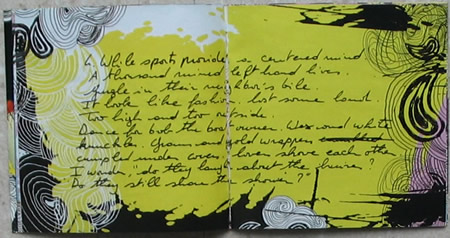 While sports provide a centered mind
A thousand mined left hand lives
in their neighbor's bile.
It looks like fashion, but some
too high and too outside.
Dance for bob the boat owner. Wax and white
knuckles. and gold wrappers
crumpled under covers. shove each other
I wonder, "do they laugh about the
Do they still share the shower?"